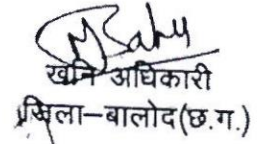 खनि अधिकारी
जिला–बालोद(छ.ग.)